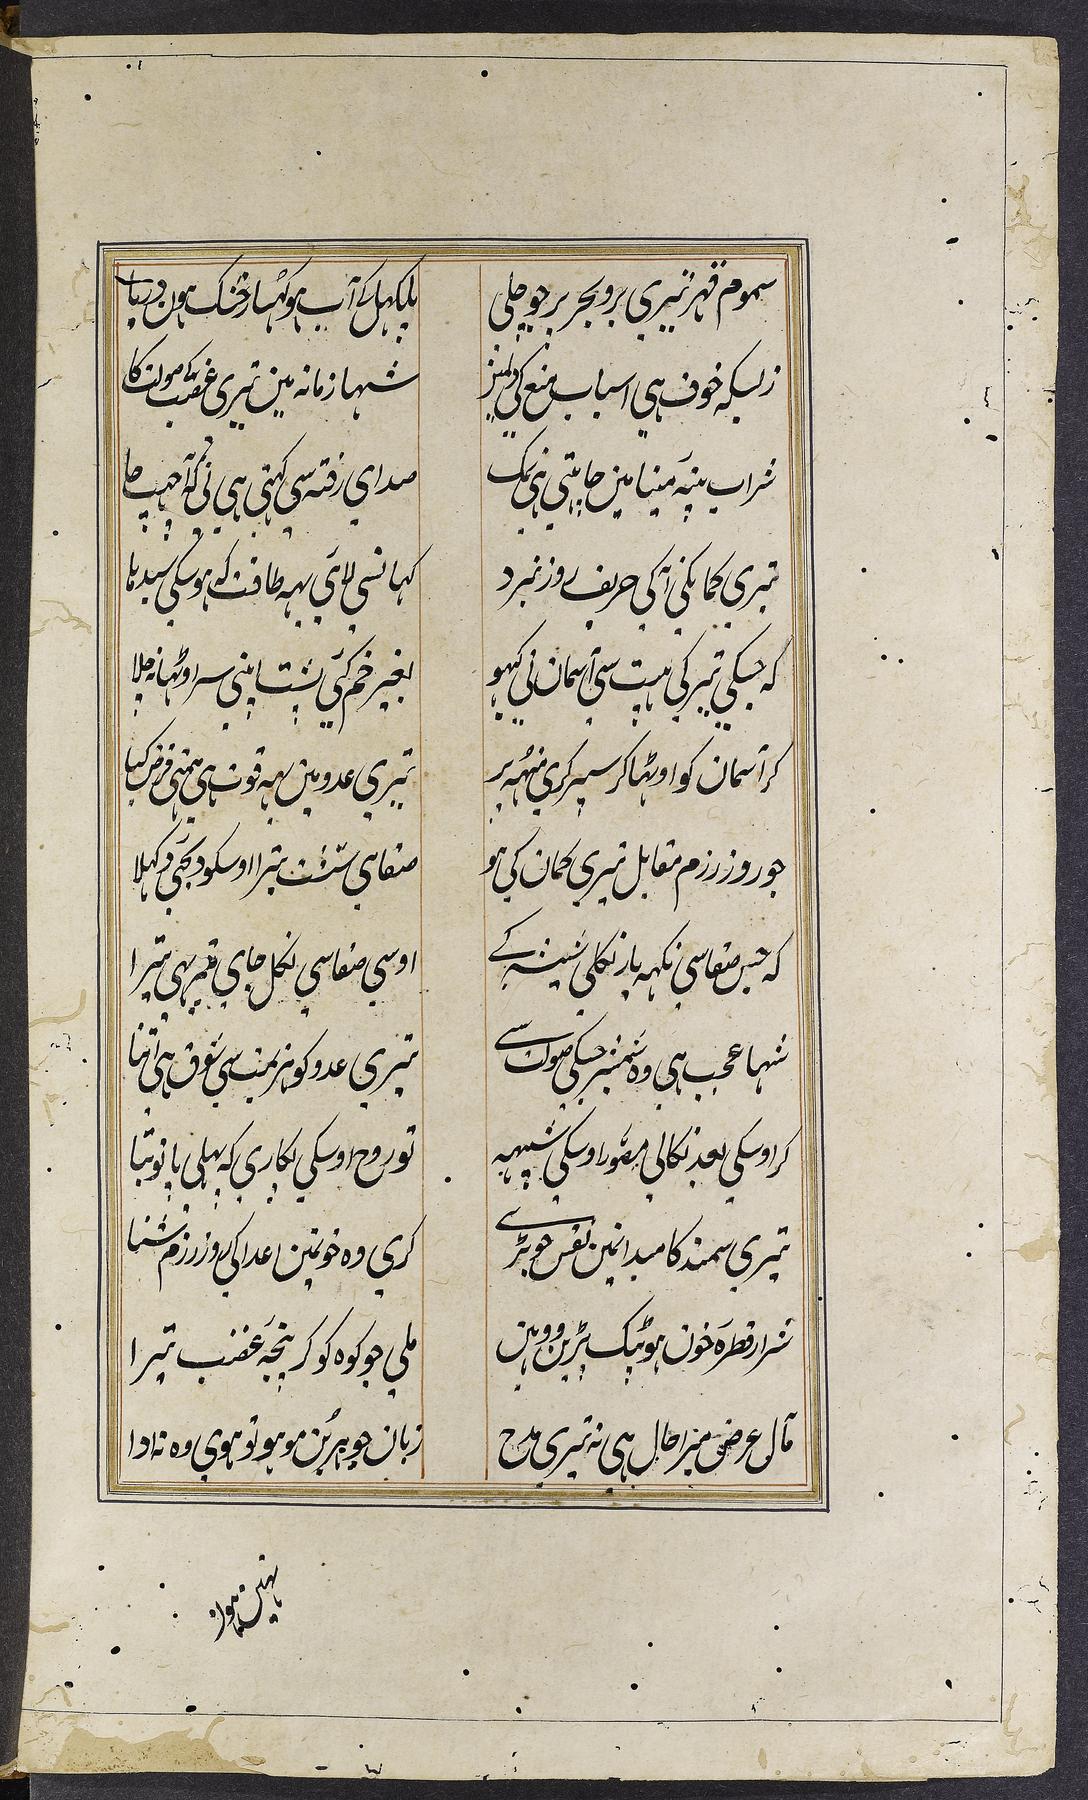 سموم قہر تیری بر و بحر پر جو چلی پگہل کے آب ہو کہسار خشک ہون دریا
زبسکہ خوف ہی اسباب منع کی شہا زمانہ مین تیری غضب کی صولت کا
شراب پنبہ مینا مین جا چہپتی ہی صدای رفتہ سی کہتی ہی نی کہ آ چہپ جا
تیری کمانکی آکی حریف روز نبرد کہانسی لای یہہ طاقت کہ ہوسکی سیدہا
کہ جسکی تیر کی ہیبت سی آسمان نی کبہو بغیر خم کئی پشت اپنی سر اوٹہا نہ چلا
کر آسمان کو اوٹہا کر سپر کری منہہ پر تیری عدو مین یہہ قوت ہی ہمنی فرض کیا
جو روز رزم مقابل تیری کمان کی ہو صفاہی شست تیرا اوسکو دیجئی دکہلا
کہ جس صفاسی نگہہ پار نکلی شیشہ کے اوسی صفاسی نکل جای تیر بہی تیرا
شہا عجب ہی وہ شمشیر جسکی صولت سے تیری عدو کو ہزیمت سی شوق ہی اتنا
کر اوسکی بعد نکالی مصور اوسکی شبیہہ تو روح اوسکی پکاری کہ پہلی پانو بنا
تیری سمند کا میدانمین نقش جو پڑے کری وہ خونمین اعدا کی روز رزم شنا
شرار قطرہ خون ہو ٹپک پڑین وو ہین ملی جو کوہ کو گر پنجہ غضب تیرا
مآل عرض میرا حال ہی نہ تیری مدح زبان جو ہر بن مو ہو تو ہوی وہ نہ ادا